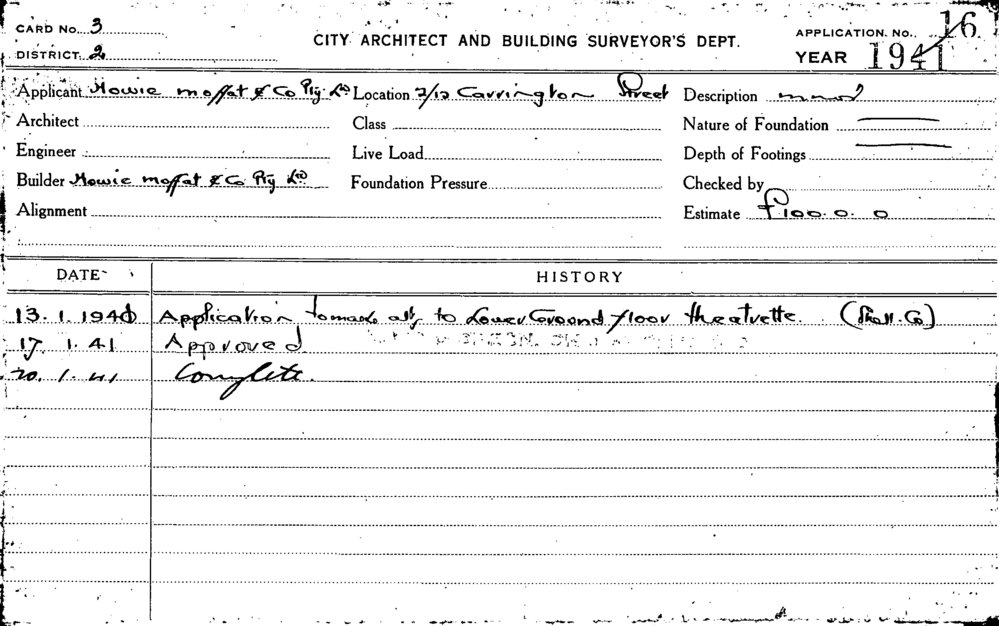 CARD NO. 3
CITY ARCHITECT AND BUILDING SURVEYOR'S DEPT.
APPLICATION. NO. 16
DISTRICT. 2
YEAR 1941
Applicant Howie moffat & Co Pty. Ltd Location 2/12 Carrington Street Description
Architect Class Nature of Foundation
Engineer Live Load Depth of Footings
Builder Howie moffat & Co Pty Ltd Foundation Pressure Checked by
Alignment Estimate £100. 0. 0
DATE HISTORY
13. 1. 1941 Application to make alts to Lower Ground floor theatrette. (Shell. Co)
17. 1. 41 Approved
20. 1. 41 Complete.